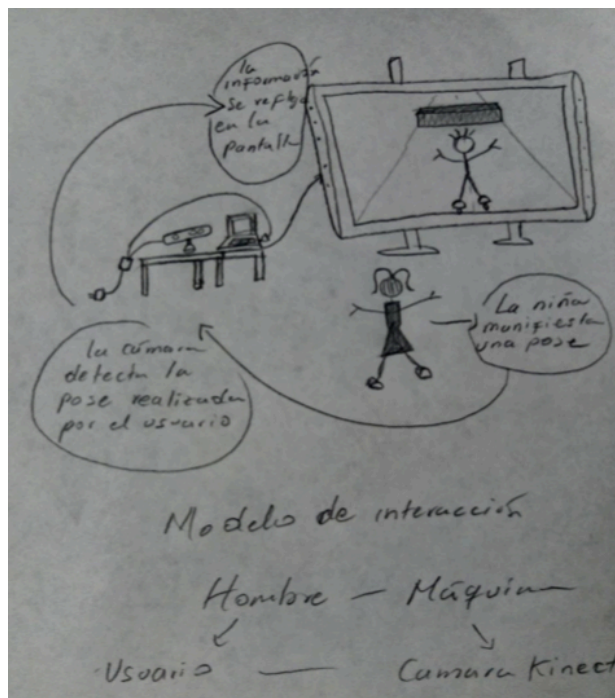 la
información
se refleja
en la
pantalla
La niña
manifiesta
una pose
la cámara
detecta la
pose realizada
por el usuario
Modelo de interacción
Hombre — Máquina
Usuario — Camara Kinect